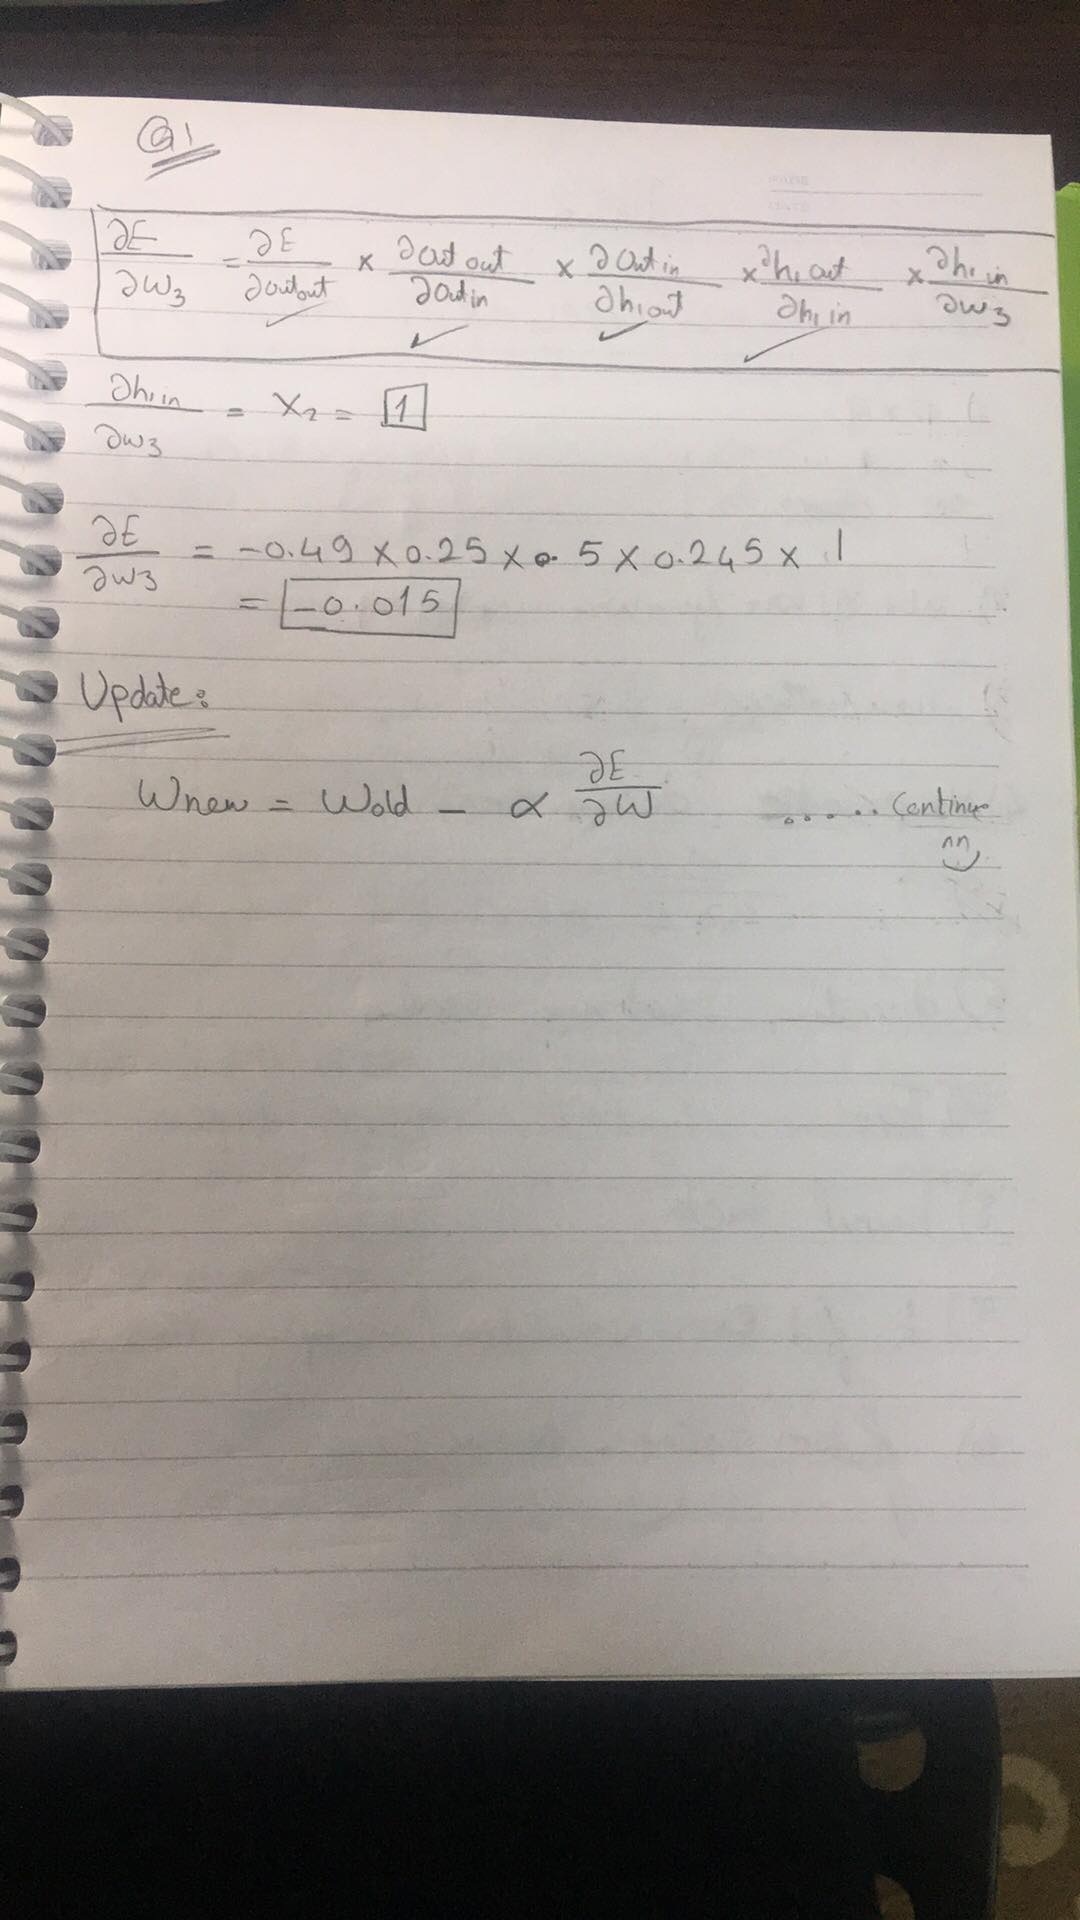 Q1
∂E/∂w3 = ∂E/∂outout × ∂out out/∂out in × ∂out in/∂h1 out × ∂h1 out/∂h1 in × ∂h1 in/∂w3
∂h1 in/∂w3 = X2 = 1
∂E/∂w3 = -0.49 × 0.25 × 0.5 × 0.245 × 1
= -0.015
Update:
Wnew = Wold - α ∂E/∂W ..... Continue